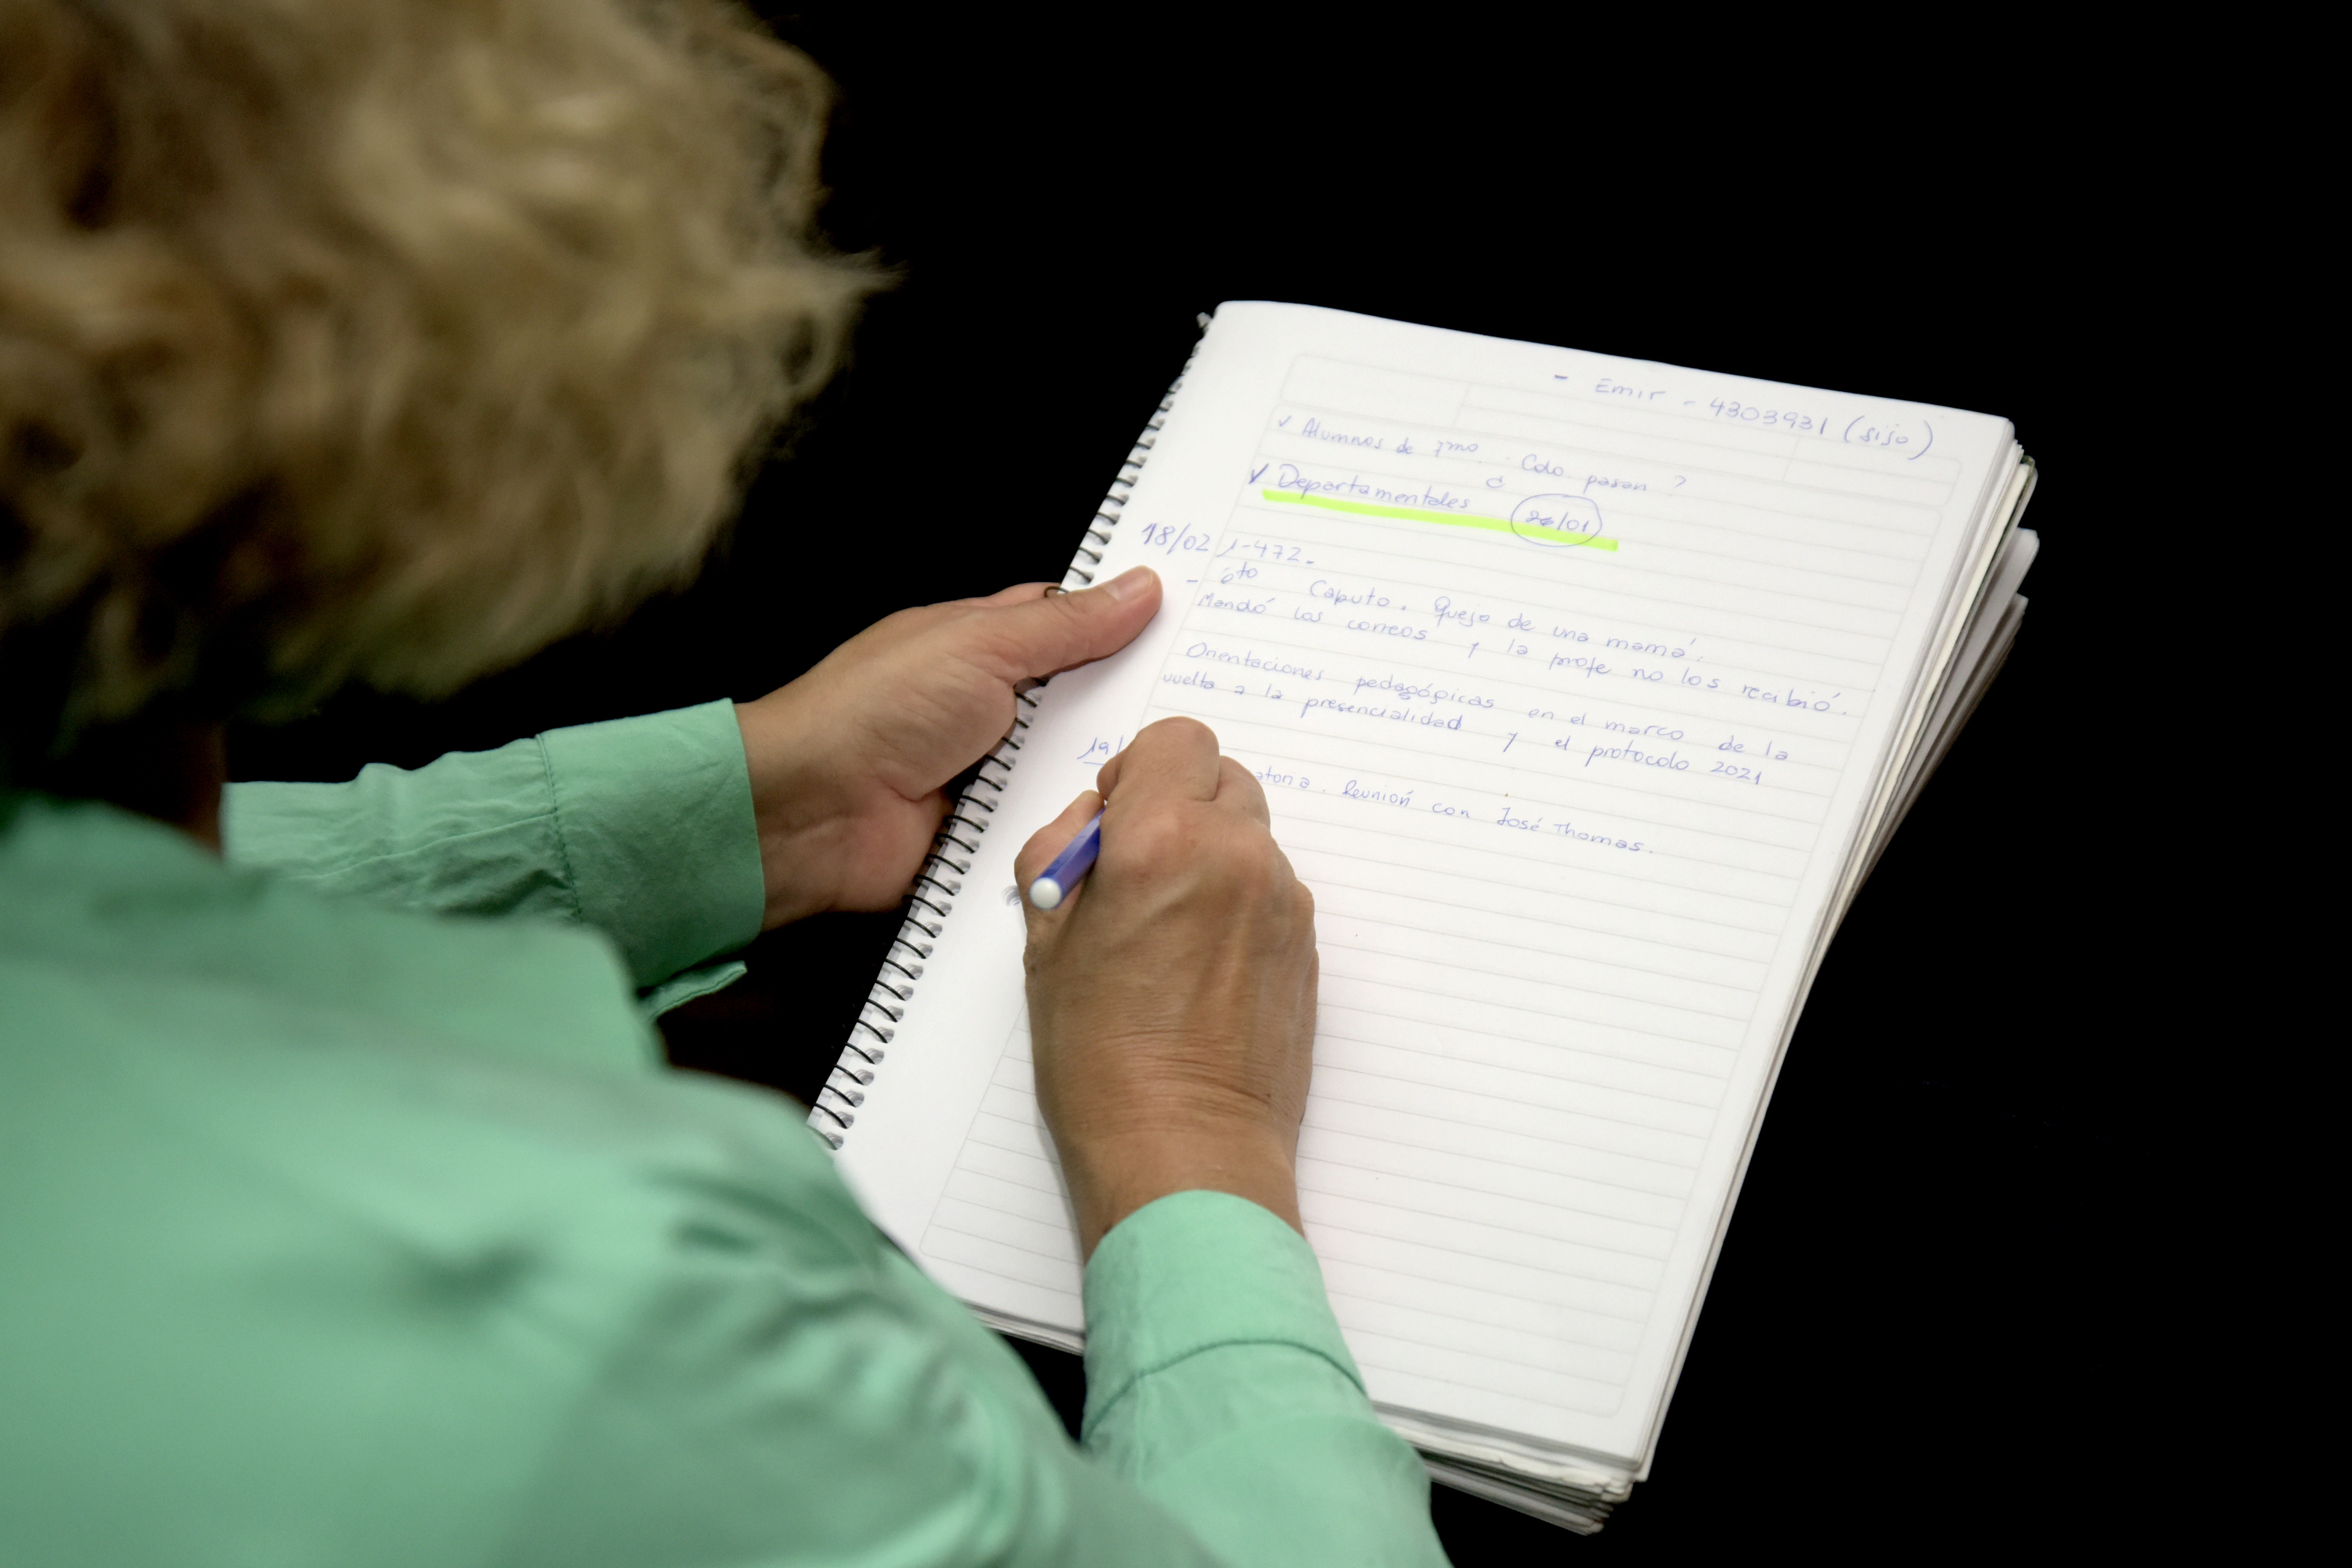 - Emir - 4303931 (sijo)
✓ Alumnos de 7mo. Cdo. pasan ?
✓ Departamentales /01
18/02 1-472.-
- 6to Caputo. Queja de una mamá.
Mandó los correos y la profe no los recibió.
Orientaciones pedagógicas en el marco de la
vuelta a la presencialidad y el protocolo 2021
19/ atoria. Reunión con José Thomas.